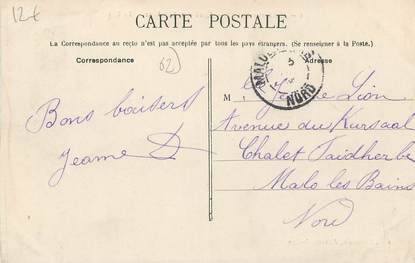 12€
CARTE POSTALE
La Correspondance au recto n'est pas acceptée par tous les pays étrangers. (Se renseigner à la Poste.)
Correspondance
Adresse
62
MALO
NORD
M
Lion
Bons baisers
Jeanne D
Avenue du Kursaal
Chalet Faidherbe
Malo les Bains
Nord